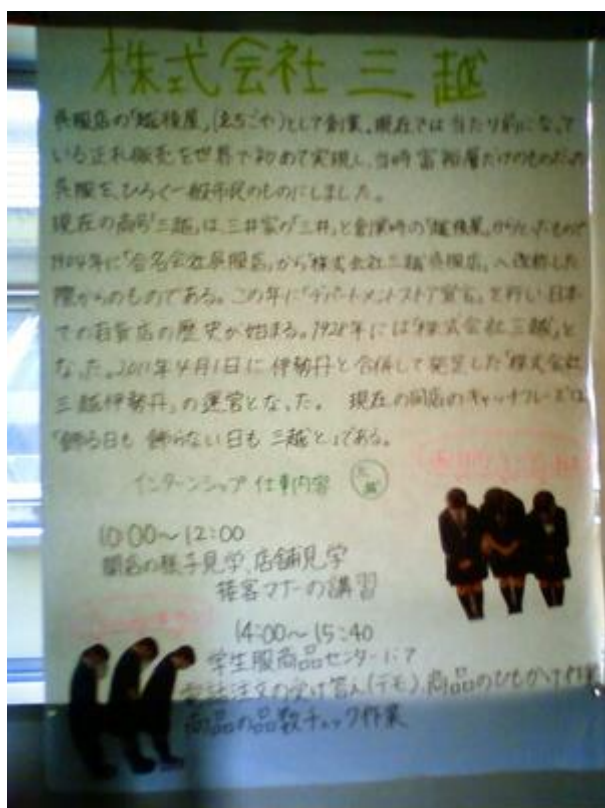 株式会社 三越
呉服店の「越後屋」(ゑちごや)として創業。現在では当たり前になって
いる正札販売を世界で初めて実現し、当時富裕層だけのものだった
呉服を、ひろく一般市民のものにしました。
現在の商号「三越」は、三井家の「三井」と創業時の「越後屋」からとったもので
1904年に「合名会社呉服店」から「株式会社三越呉服店」へ改称した
際からのものである。この年に「デパートメントストア宣言」を行い日本
での百貨店の歴史が始まる。1928年には「株式会社三越」と
なった。2011年4月1日に伊勢丹と合併して発足した「株式会社
三越伊勢丹」の運営となった。 現在の同店のキャッチフレーズは
「飾る日も 飾らない日も 三越と」である。
インターンシップ 仕事内容 三越
10:00～12:00
開店の様子見学、店舗見学
接客マナーの講習
14:00～15:40
学生服商品センターにて
電話注文の受け答え(デモ)、商品のひもかけ作業
商品の品数チェック作業